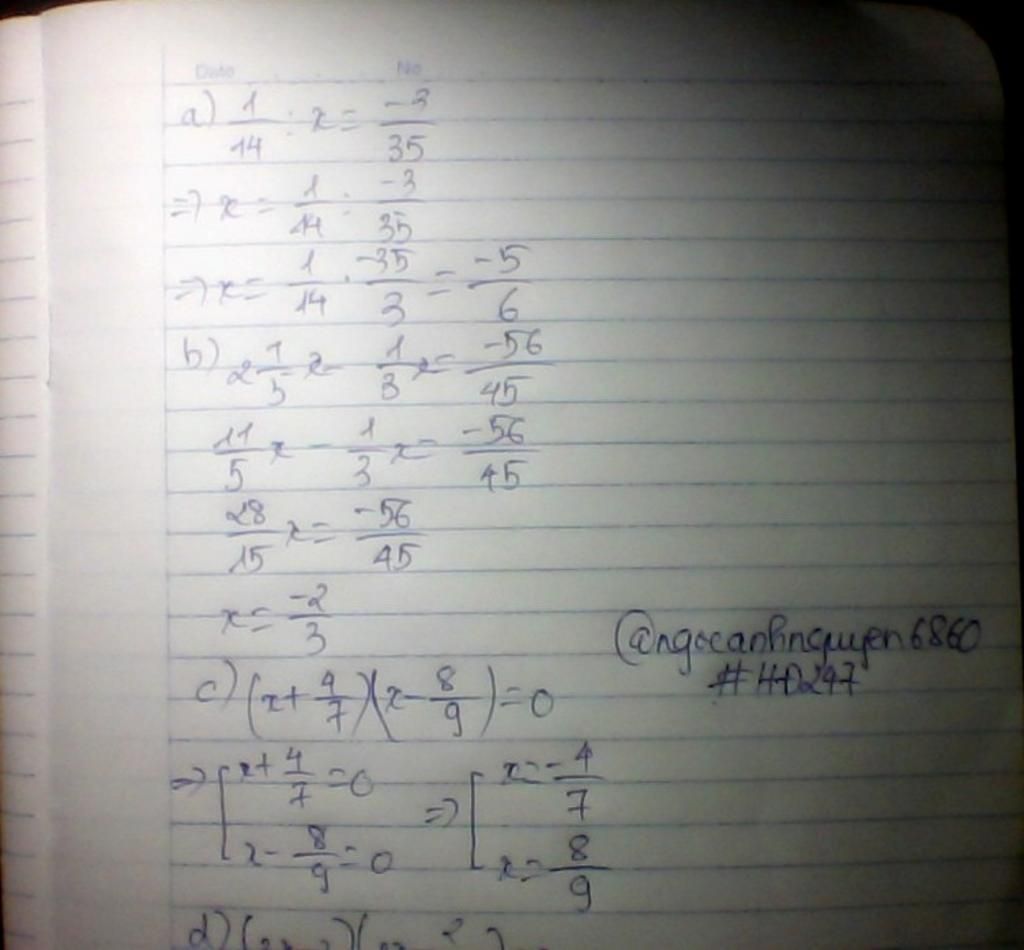 Date No
a) 1/14 : x = -3/35
=> x = 1/14 : -3/35
=> x = 1/14 . -35/3 = -5/6
b) 2 1/5 x - 1/3 x = -56/45
11/5 x - 1/3 x = -56/45
28/15 x = -56/45
x = -2/3
@ngocanhnguyen6860
#HD247
c) (x + 4/7)(x - 8/9) = 0
=> [ x + 4/7 = 0 => [ x = -4/7
x - 8/9 = 0 x = 8/9
d)